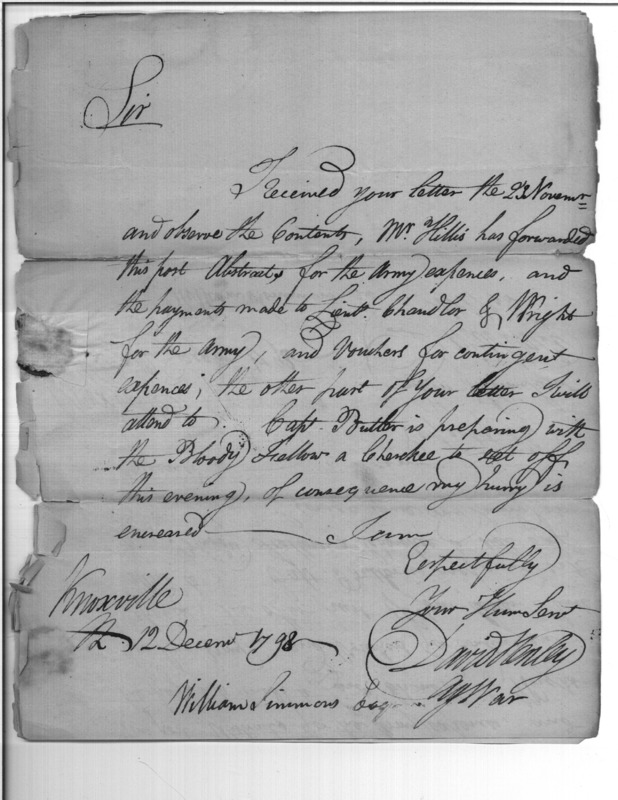 Sir
I Received your letter the 23 Novemr
and observe the Contents, Mr Hillis has forwarded
this post Abstracts for the Army expences, and
the payments made to Lieuts. Chandlor & Wright
for the Army, and Vouchers for contingent
expences; the other part of your letter I will
attend to. Capt. Butler is preparing with
the Bloody Fellow a Cherokee to set off
this evening, of consequence my hurry is
encreased — I am
Respectfully
Your Hum Servt
David Henley
Knoxville
12 Decemr 1798
William Simmons Esqr
Ag War